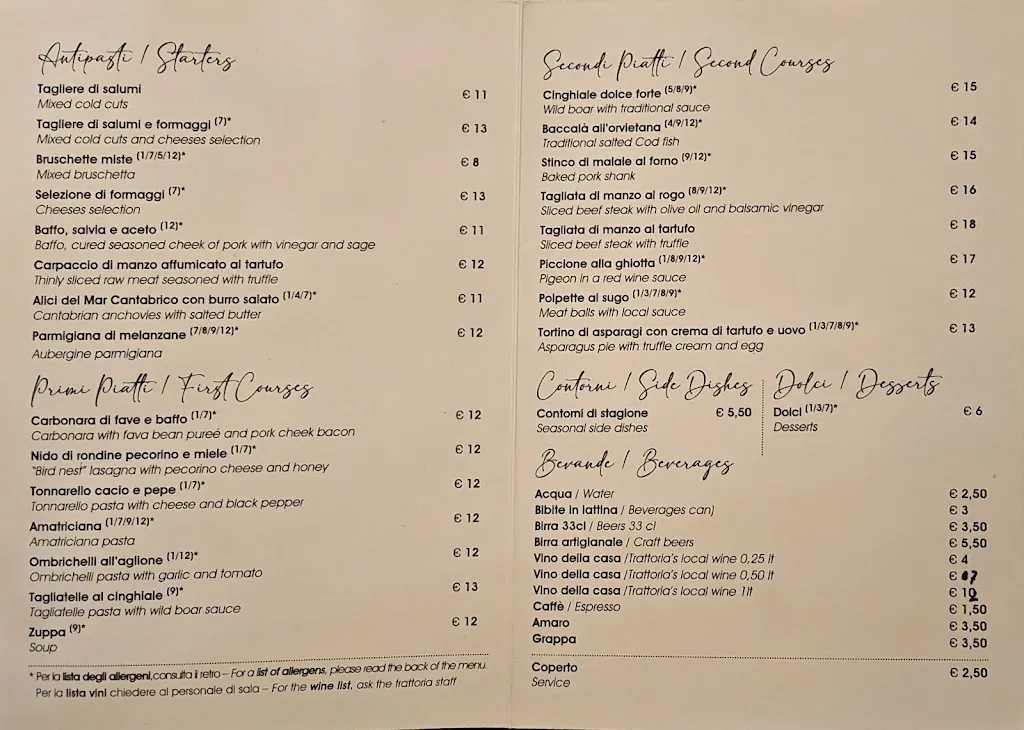 Antipasti / Starters
Tagliere di salumi € 11
Mixed cold cuts
Tagliere di salumi e formaggi (7)* € 13
Mixed cold cuts and cheeses selection
Bruschette miste (1/7/5/12)* € 8
Mixed bruschetta
Selezione di formaggi (7)* € 13
Cheeses selection
Baffo, salvia e aceto (12)* € 11
Baffo, cured seasoned cheek of pork with vinegar and sage
Carpaccio di manzo affumicato al tartufo € 12
Thinly sliced raw meat seasoned with truffle
Alici del Mar Cantabrico con burro salato (1/4/7)* € 11
Cantabrian anchovies with salted butter
Parmigiana di melanzane (7/8/9/12)* € 12
Aubergine parmigiana
Primi Piatti / First Courses
Carbonara di fave e baffo (1/7)* € 12
Carbonara with fava bean pureé and pork cheek bacon
Nido di rondine pecorino e miele (1/7)* € 12
"Bird nest" lasagna with pecorino cheese and honey
Tonnarello cacio e pepe (1/7)* € 12
Tonnarello pasta with cheese and black pepper
Amatriciana (1/7/9/12)* € 12
Amatriciana pasta
Ombrichelli all'aglione (1/12)* € 12
Ombrichelli pasta with garlic and tomato
Tagliatelle al cinghiale (9)* € 13
Tagliatelle pasta with wild boar sauce
Zuppa (9)* € 12
Soup
* Per la lista degli allergeni,consulta il retro – For a list of allergens, please read the back of the menu.
Per la lista vini chiedere al personale di sala – For the wine list, ask the trattoria staff
Secondi Piatti / Second Courses
Cinghiale dolce forte (5/8/9)* € 15
Wild boar with traditional sauce
Baccalà all'orvietana (4/9/12)* € 14
Traditional salted Cod fish
Stinco di maiale al forno (9/12)* € 15
Baked pork shank
Tagliata di manzo al rogo (8/9/12)* € 16
Sliced beef steak with olive oil and balsamic vinegar
Tagliata di manzo al tartufo € 18
Sliced beef steak with truffle
Piccione alla ghiotta (1/8/9/12)* € 17
Pigeon in a red wine sauce
Polpette al sugo (1/3/7/8/9)* € 12
Meat balls with local sauce
Tortino di asparagi con crema di tartufo e uovo (1/3/7/8/9)* € 13
Asparagus pie with truffle cream and egg
Contorni / Side Dishes
Contorni di stagione € 5,50
Seasonal side dishes
Dolci / Desserts
Dolci (1/3/7)* € 6
Desserts
Bevande / Beverages
Acqua / Water € 2,50
Bibite in lattina / Beverages can) € 3
Birra 33cl / Beers 33 cl € 3,50
Birra artigianale / Craft beers € 5,50
Vino della casa /Trattoria's local wine 0,25 lt € 4
Vino della casa /Trattoria's local wine 0,50 lt € 7
Vino della casa /Trattoria's local wine 1lt € 12
Caffè / Espresso € 1,50
Amaro € 3,50
Grappa € 3,50
Coperto € 2,50
Service